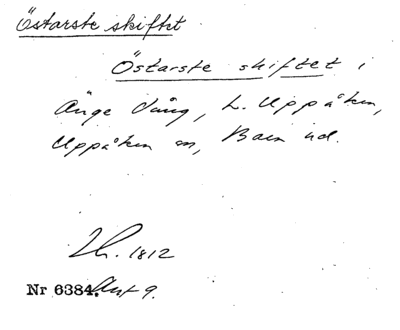 Östarste skiftet
Östarste skiftet i
Änge vång, L. Uppåkra,
Uppåkra sn, Bara hd.
Lh. 1812
Nr 6384. Akt 9.